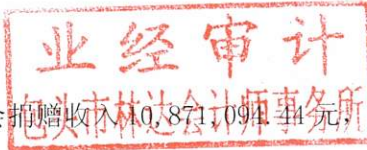 业经审计
包头市林达会计师事务所
捐赠收入10,871,094.44元,